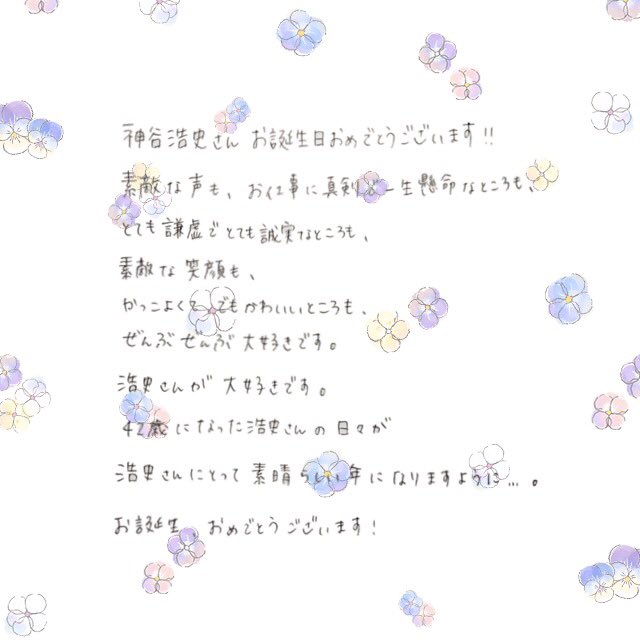 神谷浩史さん お誕生日おめでとうございます!!
素敵な声も、お仕事に真剣で一生懸命なところも、
とても謙虚でとても誠実なところも、
素敵な笑顔も、
かっこよくて でもかわいいところも、
ぜんぶ ぜんぶ 大好きです。
浩史さんが 大好きです。
42歳になった浩史さんの日々が
浩史さんにとって 素晴らしい年になりますように…。
お誕生、おめでとうございます!